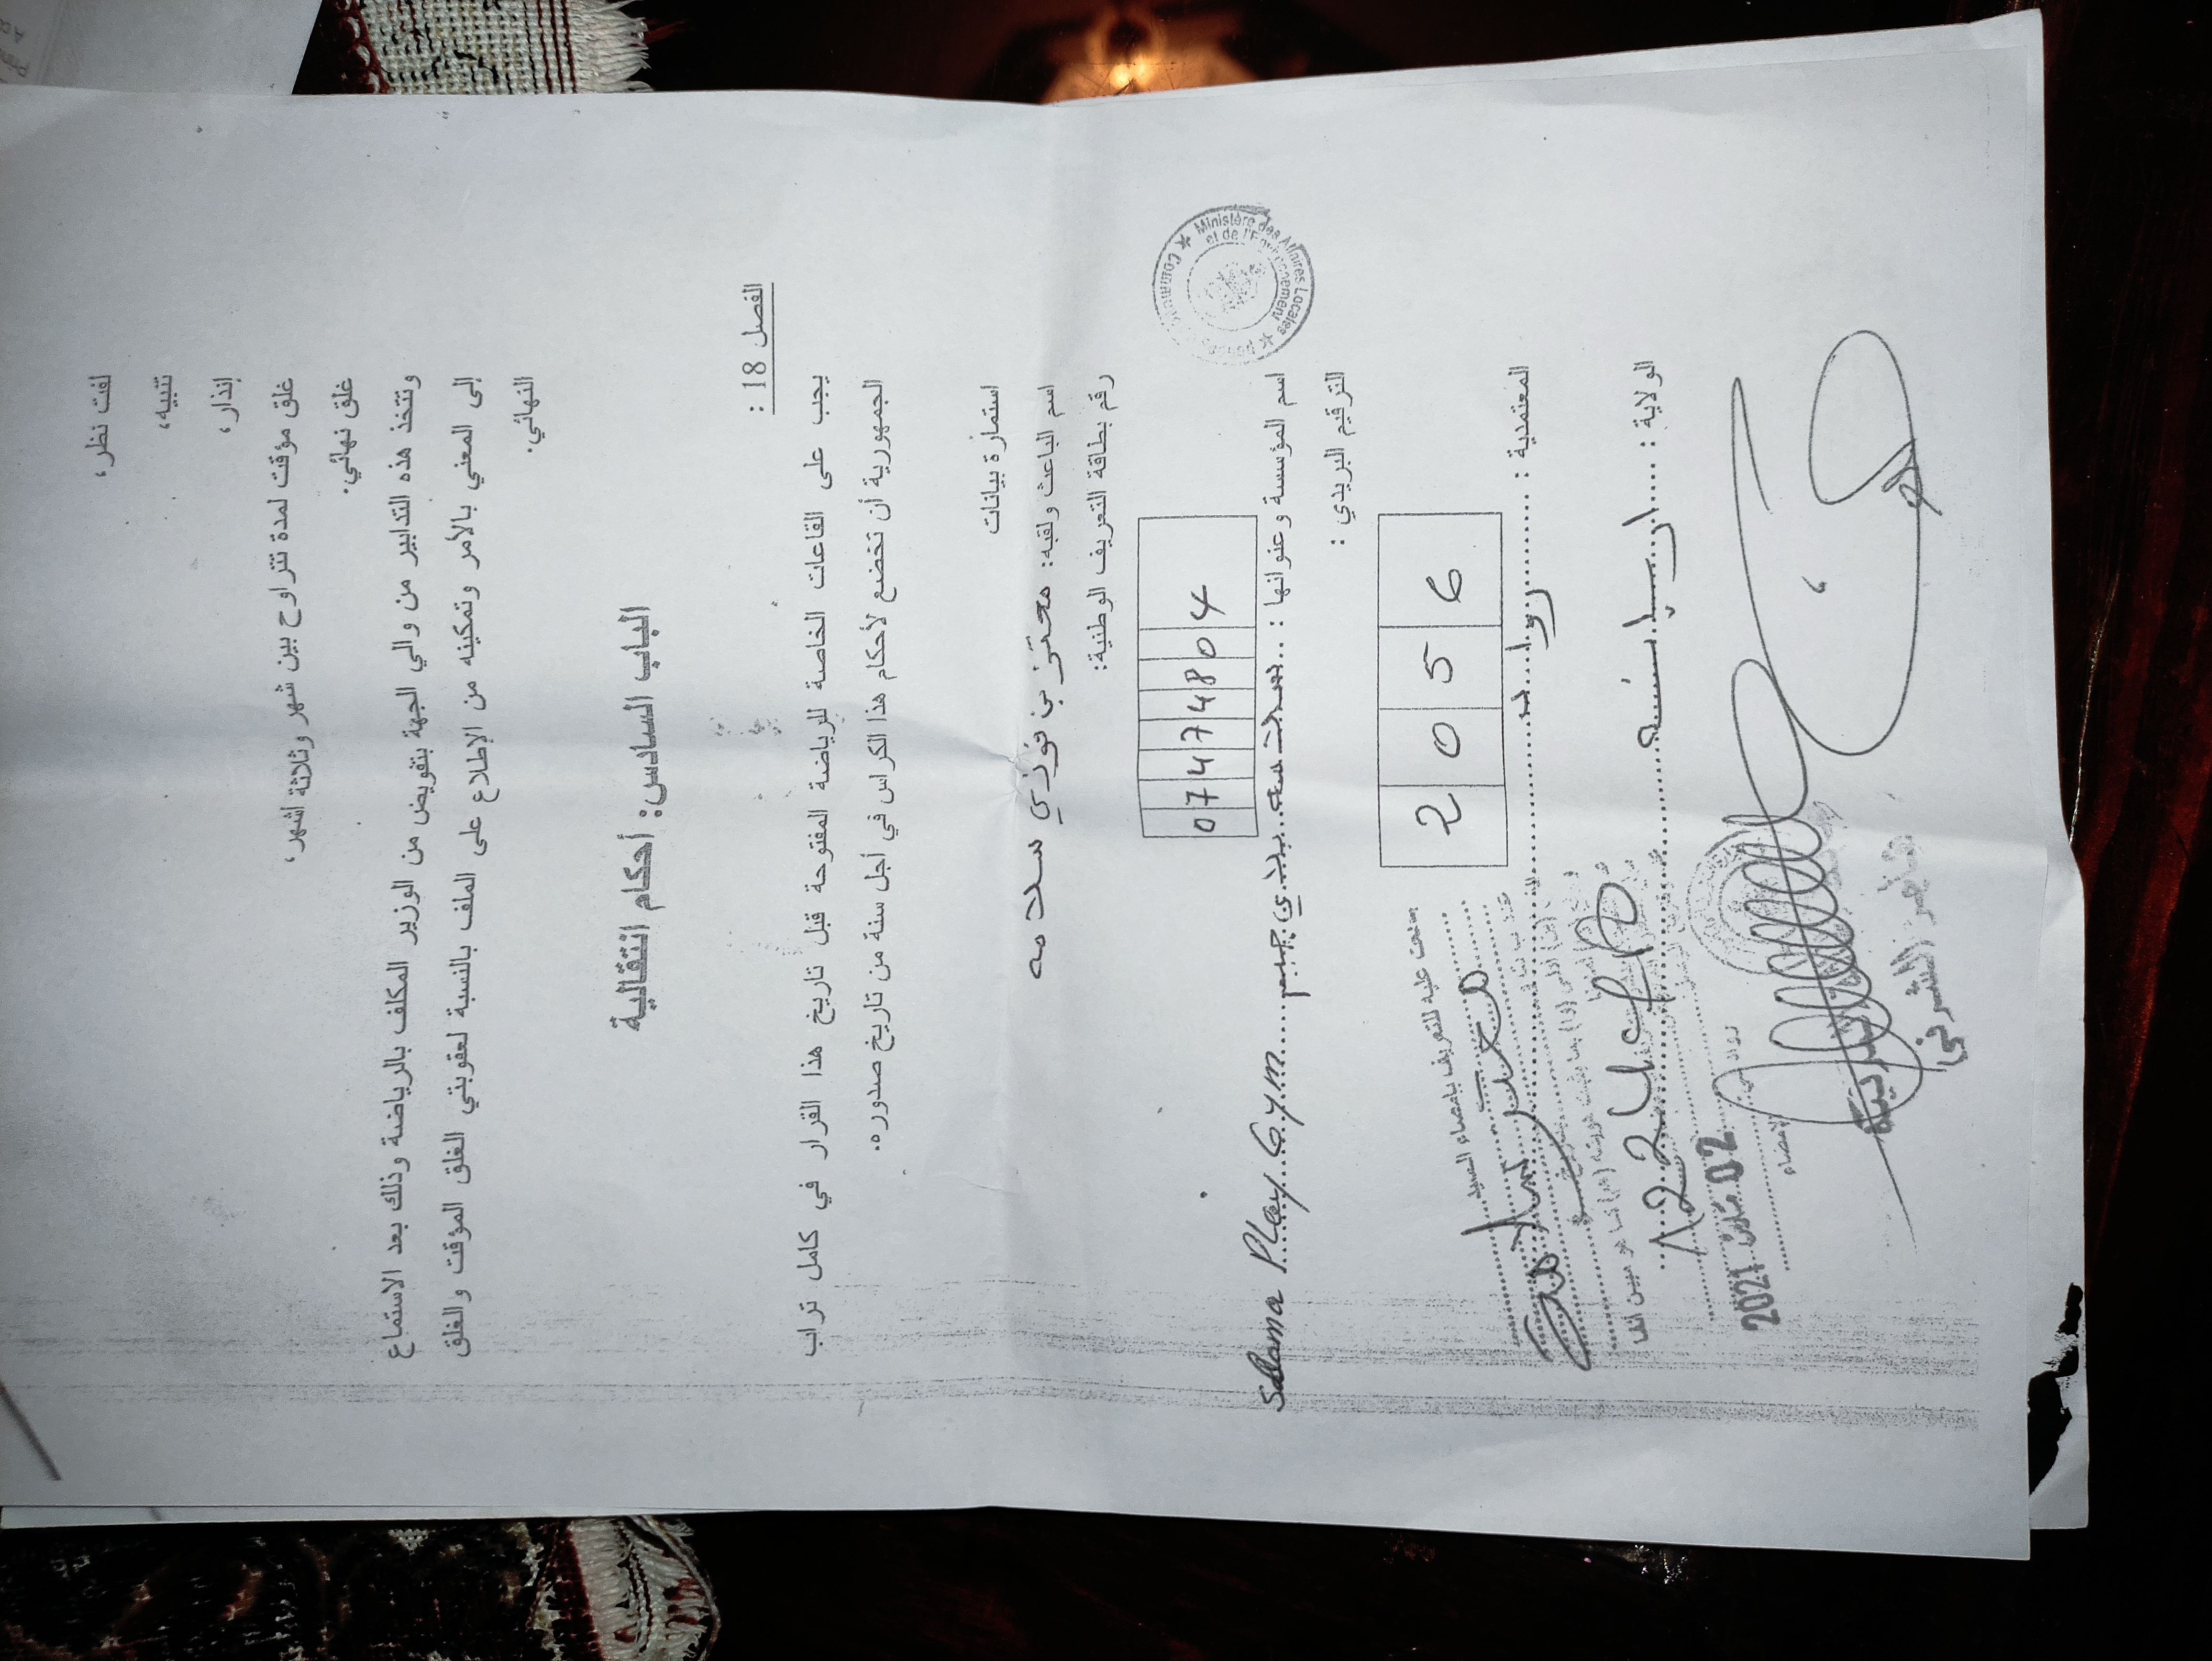 لفت نظر،
تنبيه،
إنذار،
غلق مؤقت لمدة تتراوح بين شهر وثلاثة أشهر،
غلق نهائي.
وتتخذ هذه التدابير من والي الجهة بتفويض من الوزير المكلف بالرياضة وذلك بعد الاستماع
إلى المعني بالأمر وتمكينه من الإطلاع على الملف بالنسبة لعقوبتي الغلق المؤقت والغلق
النهائي.
الباب السادس: أحكام انتقالية
الفصل 18 :
يجب على القاعات الخاصة للرياضة المفتوحة قبل تاريخ هذا القرار في كامل تراب
الجمهورية أن تخضع لأحكام هذا الكراس في أجل سنة من تاريخ صدوره.
استمارة بيانات
اسم الباعث ولقبه: معتز بن فوزي سلامه
رقم بطاقة التعريف الوطنية:
07474804
Ministère des Affaires Locales
et de l'Environnement
اسم المؤسسة وعنوانها : سلامه بلاي جيم Salama Play Gym
الترقيم البريدي :
2056
المعتمدية : رواد
الولاية : اريانه
اطلعت عليه للتعريف بإمضاء السيد
02 مارس 2021
الإمضاء